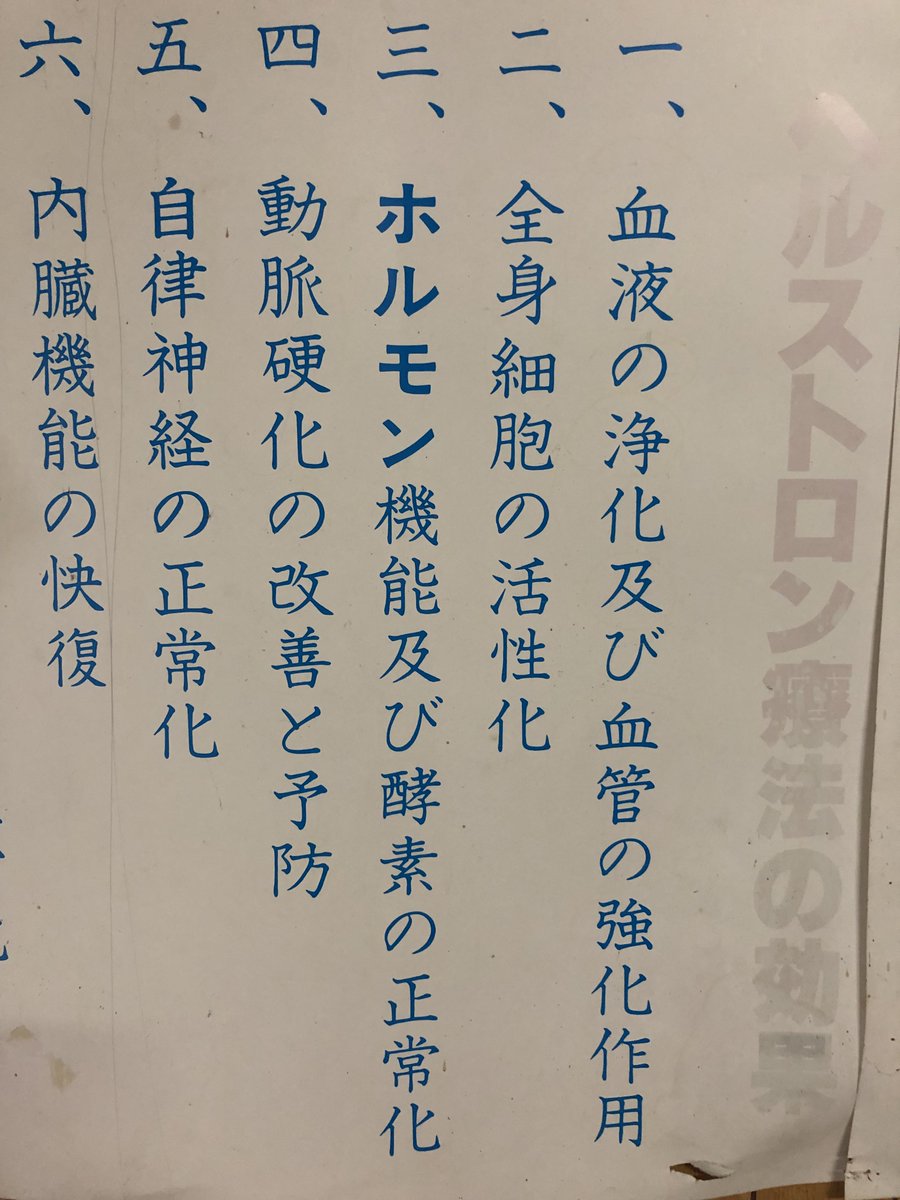 ヘルストロン療法の効果
一、血液の浄化及び血管の強化作用
二、全身細胞の活性化
三、ホルモン機能及び酵素の正常化
四、動脈硬化の改善と予防
五、自律神経の正常化
六、内臓機能の快復